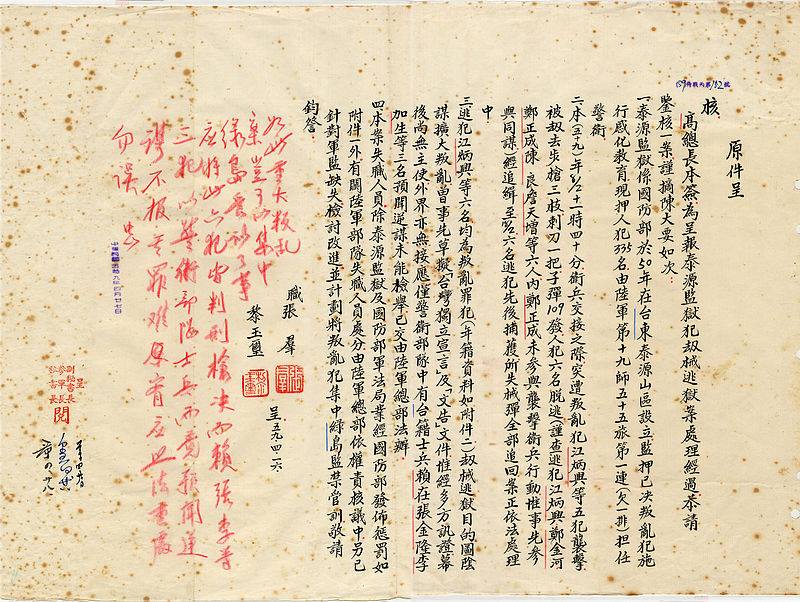 原件呈
核
高總長本簽為呈報泰源監獄犯劫械逃獄案處理經過恭請
鑒核一案謹摘陳大要如次:
一泰源監獄係國防部於50年在台東泰源山區設立監押已決叛亂犯施
行感化教育現押人犯335名由陸軍第十九師五十五旅第一連(欠一排)担任
警衛.
二本(五十九)年 十一時四十分衛兵交接之際突遭叛亂犯江炳興等五犯襲擊
被劫去步槍三枝刺刀一把子彈109發人犯六名脫逃(謹查逃犯江炳興鄭金河
鄭正成陳良詹天增等六人內鄭正成未參與襲擊衛兵行動惟事先參
與同謀)經追緝至 六名逃犯先後捕獲所失械彈全部追回案正依法處理
中
三逃犯江炳興等六名均為叛亂罪犯(年籍資料如附件二)劫械逃獄目的圖陰
謀擴大叛亂曾事先草擬「台灣獨立宣言」及「文告」文件惟經多方訊證幕
後尚無主使外界亦無接應僅警衛部隊中有台籍士兵賴在張金隆李
加生等三名預聞逆謀未能檢舉已交由陸軍總部法辦.
四本案失職人員除泰源監獄及國防部軍法局業經國防部發佈懲罰如
附件一外有關陸軍部隊失職人員處分由陸軍總部依權責核議中另已
針對軍監缺失檢討改進並計劃將叛亂犯集中綠島監禁管訓敬請
鈞詧.
職張 羣
黎玉璽
呈五九、四、六
如此重大叛乱
案豈可以集中
綠島管訓了事
应将此六犯皆判刑槍决而賴張李等
三犯以警衛部隊士兵而竟預聞逆
謀不报其罪难宥应照法重處
勿误 中
中華民國五拾九年四月廿七日
呈
副秘書長
參軍長
秘書長
閱